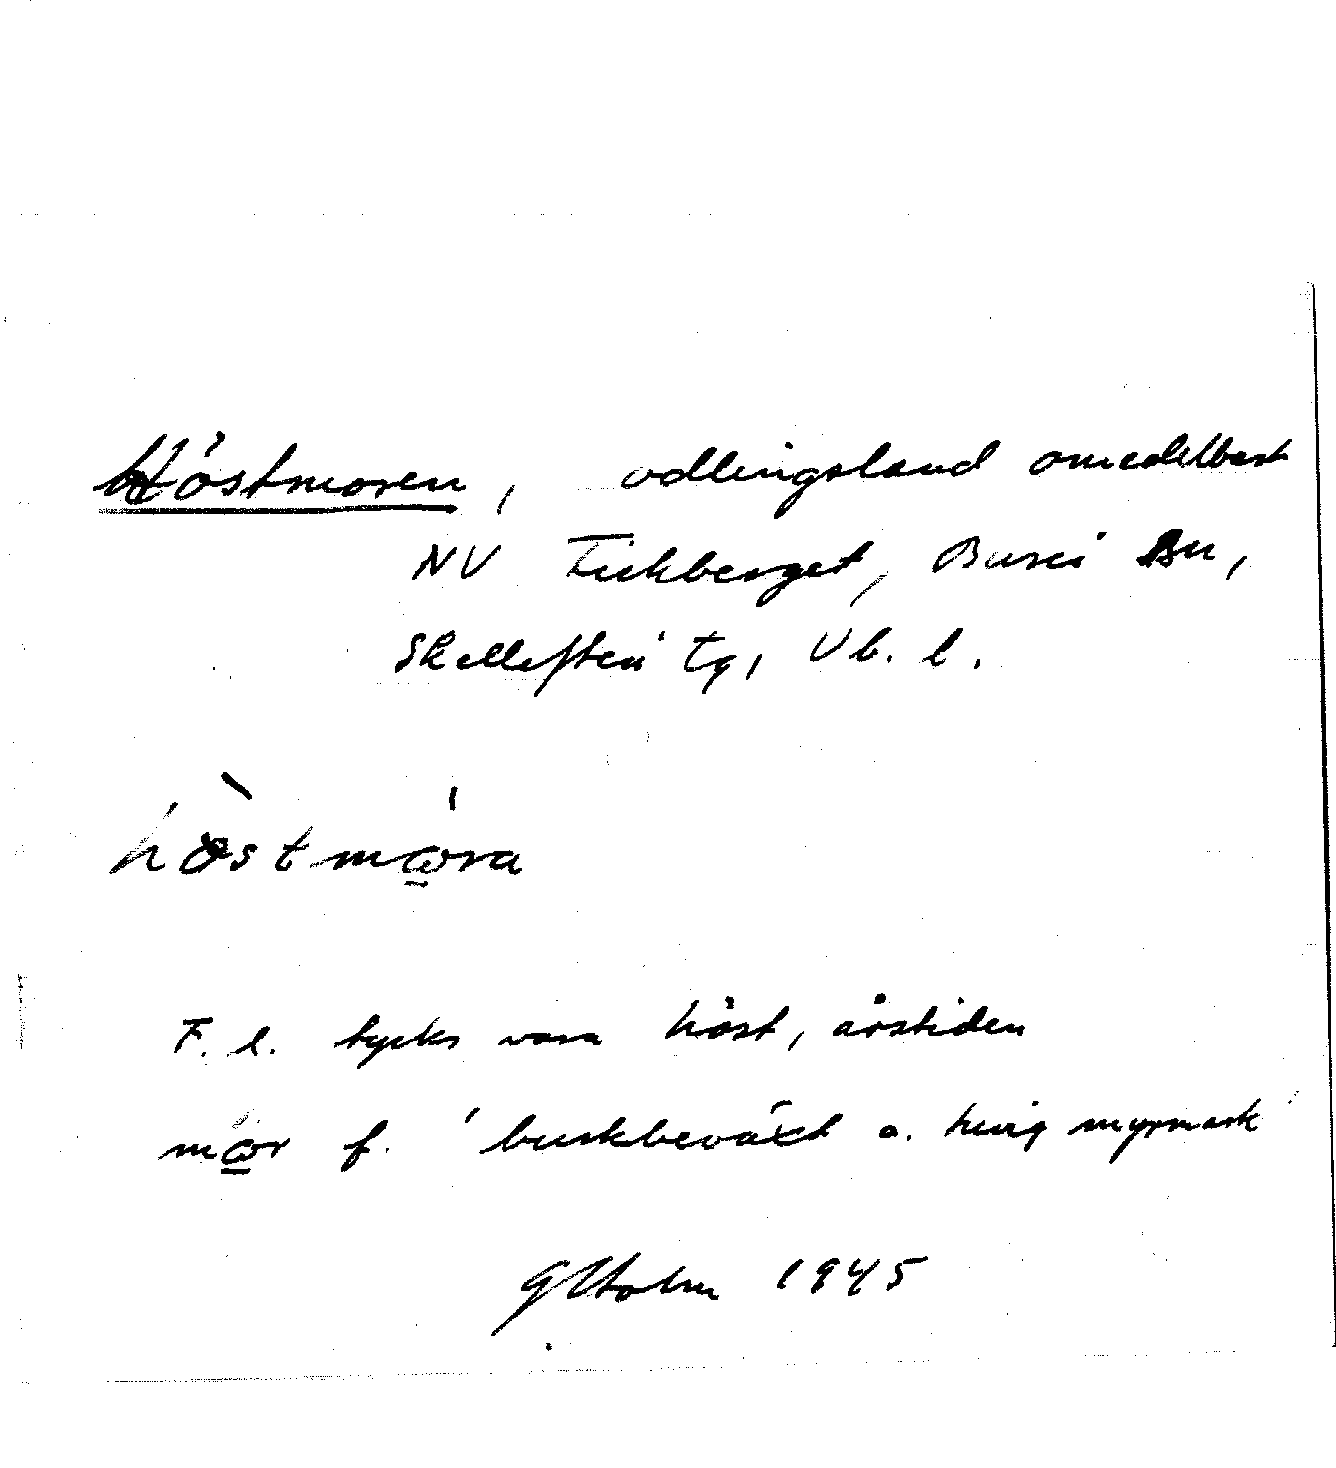 Höstmoren, odlingsland omedelbart
NV Finkberget, Bureå Bu,
Skellefteå tg, Vb. l.
höstmωra
F. l. tycks vara höst, årstiden
mωr f. 'buskbeväxt o. tuvig myrmark'
G Holm 1945